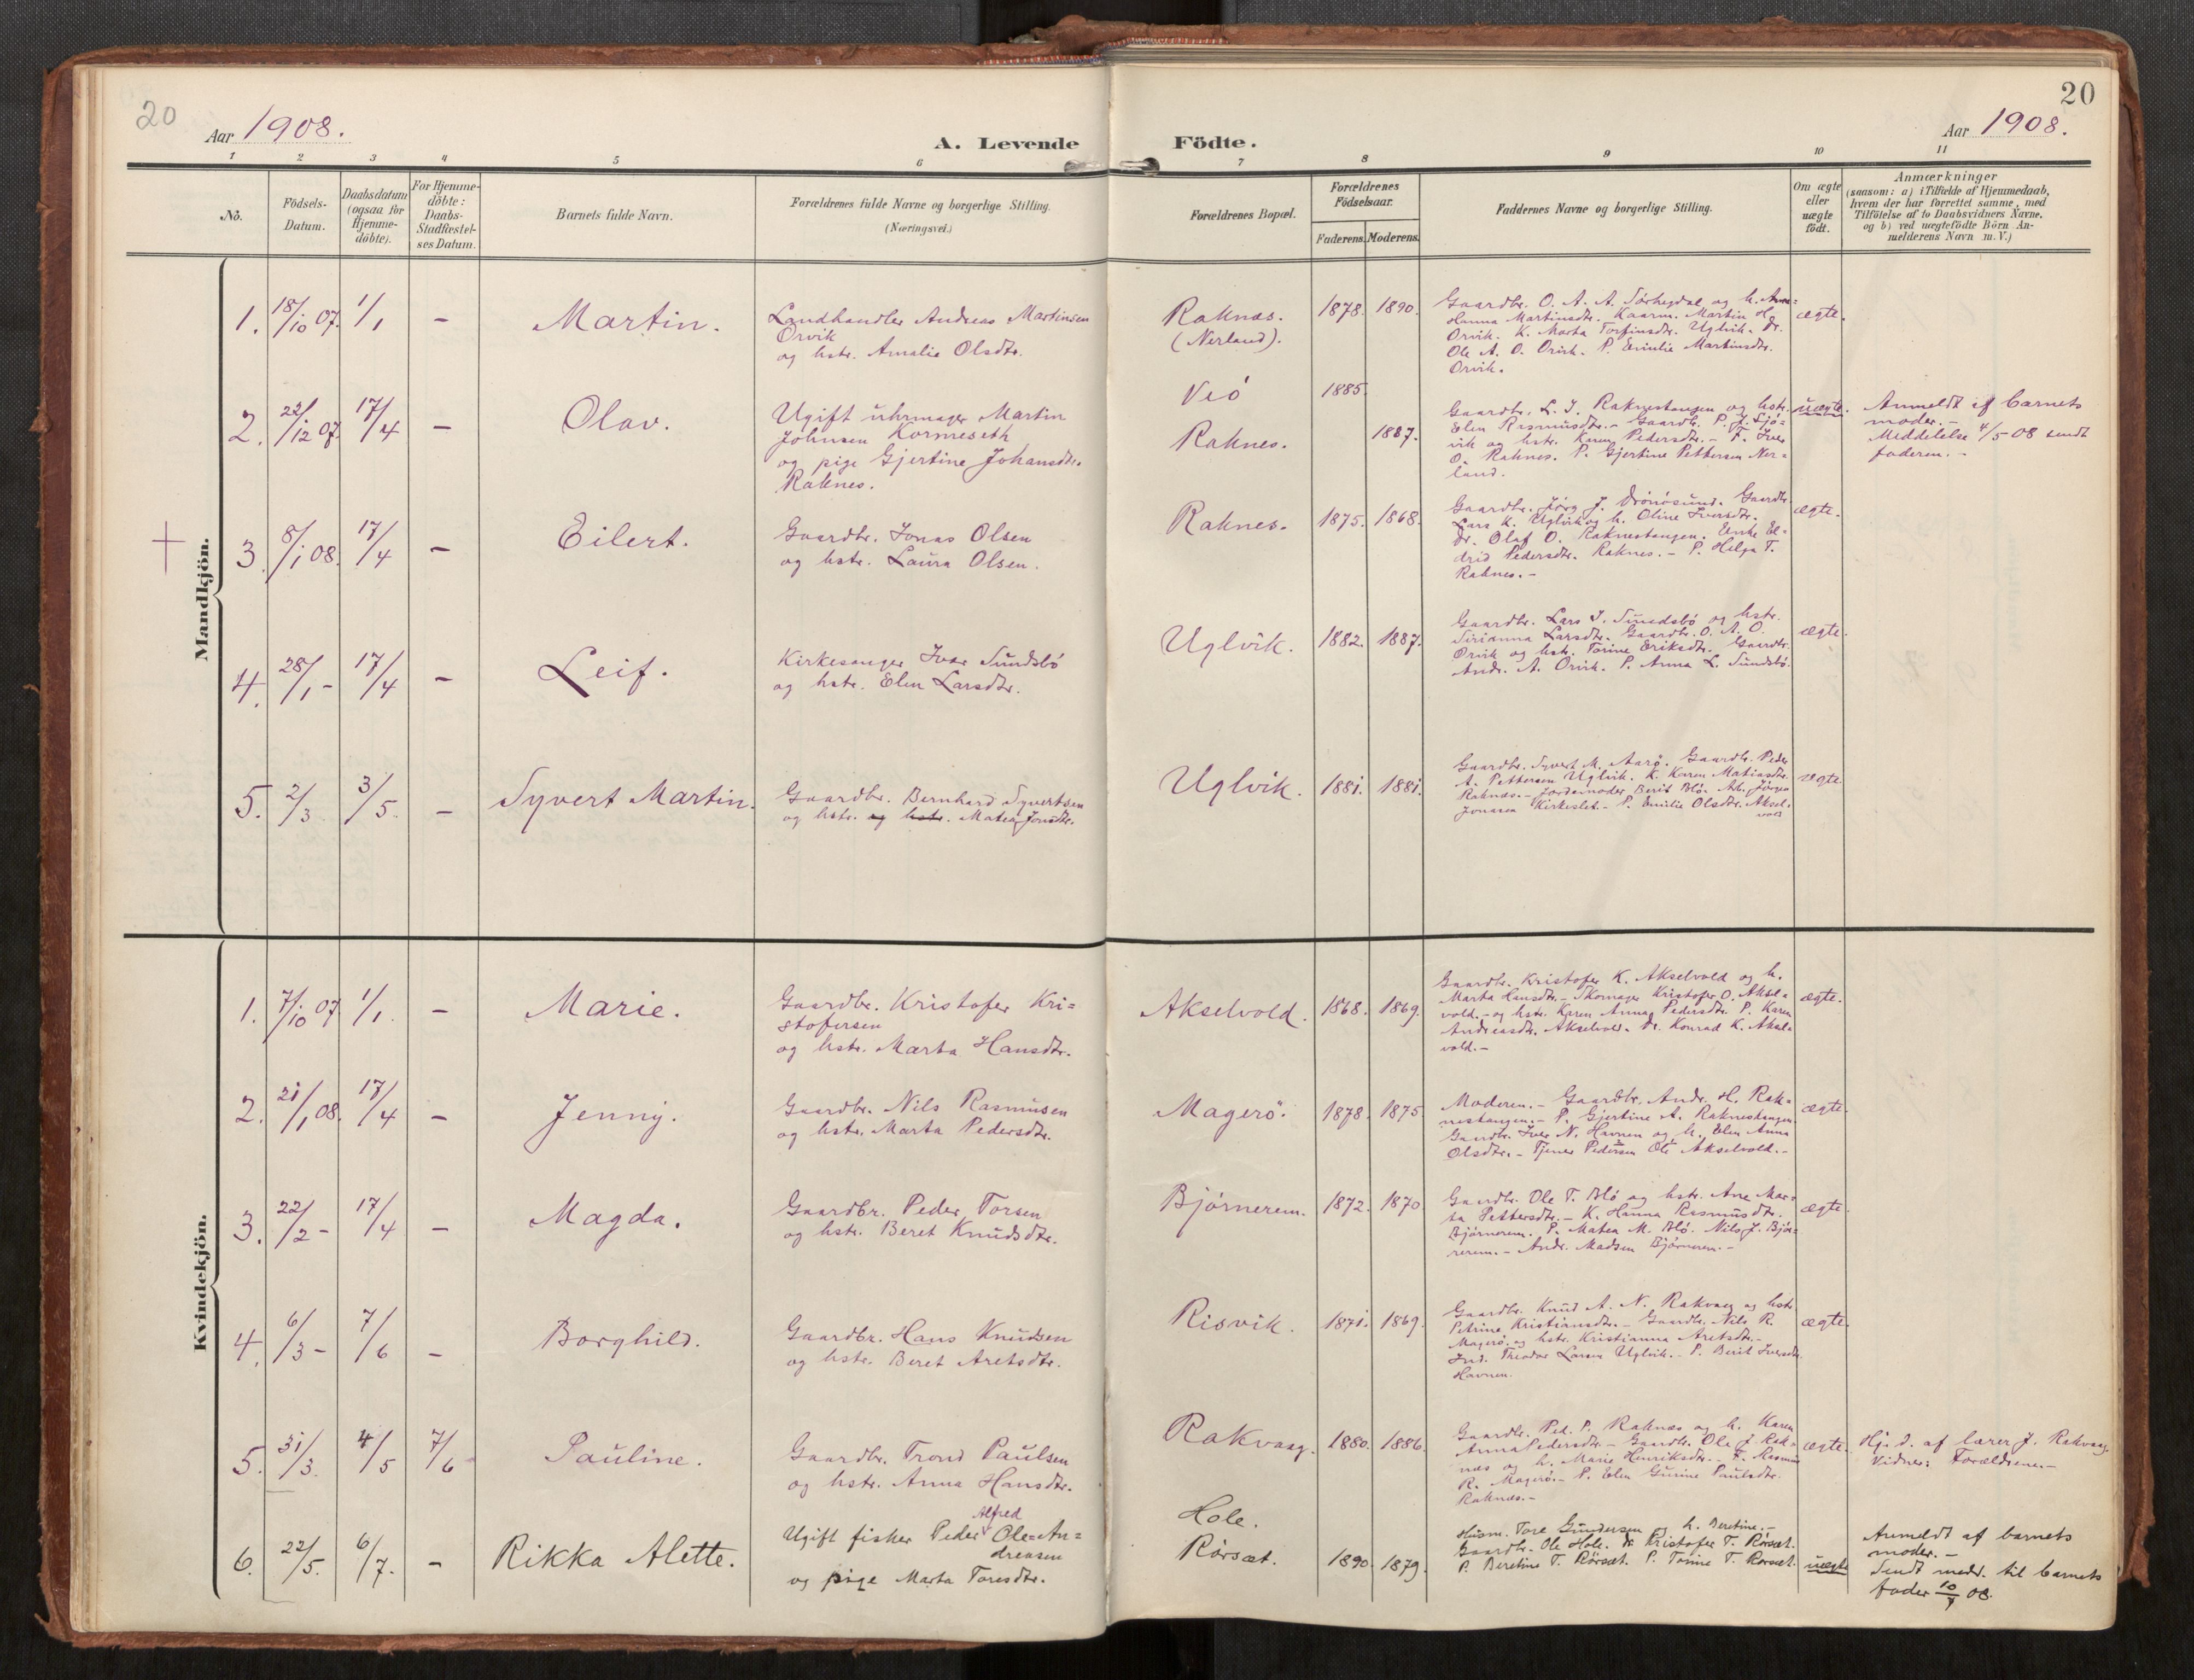 20
20
Aar 1908.
A. Levende Födte.
Aar 1908.
1 2 3 4 5 6 7 8 9 10 11
No.
Födsels-
Datum.
Daabsdatum
(ogsaa for
Hjemme-
döbte).
For Hjemme-
döbte:
Daabs-
Stadfæstel-
ses Datum.
Barnets fulde Navn.
Forældrenes fulde Navne og borgerlige Stilling.
(Næringsvei.)
Forældrenes Bopæl.
Forældrenes
Födselsaar.
Faderens. Moderens.
Faddernes Navne og borgerlige Stilling.
Om ægte
eller
uægte
födt.
Anmærkninger
(saasom: a) i Tilfælde af Hjemmedaab,
hvem der har forrettet samme, med
Tilföielse af to Daabsvidners Navne,
og b) ved uægtefödte Börn An-
melderens Navn m. V.)
Mandkjön.
1. 18/10 07. 1/1 - Martin.
Landhandler Andreas Martinsen
Orvik
og hstr. Amalie Olsdtr.
Raknæs.
(Nerland).
1878. 1890.
Gaardbr. O. A. A. Sørhegdal og h. Anne=
Hanna Martinsdtr. Kaarm. Martin H.
Orvik. K. Marta Torfinsdtr. Uglvik. Dr.
Ole A. O. Orvik. P. Emilie Martinsdtr.
Orvik.
ægte.
2. 22/12 07. 17/4 - Olav.
Ugift uhrmager Martin
Johnsen Kormeseth
og pige Gjertine Johansdtr.
Raknes.
Veö 1885.
Raknes. 1887.
Gaardbr. L. J. Raknestangen og hstr.
Elen Rasmusdtr. - Gaardb. P. J. Sjö=
vik og hstr. Karen Pedersdtr. - F. Iver
O. Raknes. P. Gjertine Pettersen Ner=
land.
uægte.
Anmeldt af barnets
moder. -
Meddelelse 4/5 08 sendt
faderen. -
3. 8/1 08. 17/4 - Eilert.
Gaardbr. Jonas Olsen
og hstr. Laura Olsen.
Raknes. 1875. 1868.
Gaardbr. Jørg J. Drönösund. Gaardbr.
Lars K. Uglvik og h. Oline Iversdtr.
Dr. Olaf O. Raknestangen. Enke El=
drid Pedersdtr. Raknes. - P. Helga T.
Raknes. -
ægte.
4. 28/1 - 17/4 - Leif.
Kirkesanger Ivar Sundsbö
og hstr. Elen Larsdtr.
Uglvik. 1882. 1887.
Gaardbr. Lars I. Sundsbö og hstr.
Sirianna Larsdtr. Gaardbr. O. A. O.
Orvik og hstr. Torine Eriksdtr. Gaardbr.
Andr. A. Orvik. P. Anna L. Sundsbö.
ægte.
5. 2/3 3/5. - Syvert Martin.
Gaardbr. Bernhard Syvertsen
og hstr. og hstr. Matea Jonsdtr.
Uglvik. 1881. 1881.
Gaardbr. Syvert M. Aarö. Gaardb. Peder
A. Pettersen Uglvik. K. Karen Matiasdtr.
Raknæs. - Jordemoder Berit Blö. Ab. Jörgen
Jonasen Kirkeslet. - P. Emilie Olsdtr. Aksel=
vold
ægte
Kvindekjön.
1. 7/10 07. 1/1. - Marie.
Gaardbr. Kristofer Kri=
stofersen
og hstr. Marta Hansdtr.
Akselvold. 1868. 1869.
Gaardbr. Kristofer K. Akselvold og h.
Marta Hansdtr. - Skomager Kristofer O. Aksel=
vold. - og hstr. Karen Anna Pedersdtr. P. Karen
Andreasdtr. Akselvold. Dr. Konrad K. Aksel=
vold. -
ægte.
2. 21/1 08. 17/4 - Jenny.
Gaardbr. Nils Rasmusen
og hstr. Marta Pedersdtr.
Magerö. 1878. 1875.
Moderen. - Gaardbr. Andr. H. Rak=
nestangen. - P. Gjertine A. Raknestangen.
Gaardbr. Iver N. Havnen og h. Elen Anna
Olsdtr. - Tjener Pedersen Ole Akselvold. -
ægte.
3. 22/2 - 17/4 - Magda.
Gaardbr. Peder Torsen
og hstr. Beret Knudsdtr.
Bjørnerem. 1872. 1870
Gaardbr. Ole T. Blö og hstr. Ane Mar=
ta Pettersdtr. - K. Hanna Rasmusdtr.
Bjørnerem. P. Matea M. Blö. Nils J. Bjør=
nerem. - Andr. Madsen Bjørnerem. -
ægte.
4. 6/3 - 7/6 - Borghild.
Gaardbr. Hans Knudsen
og hstr. Beret Aretsdtr.
Risvik. 1871. 1869.
Gaardbr. Knud A. N. Rakvaag og hstr.
Petrine Kristiansdtr. - Gaardbr. Nils R.
Magerö og hstr. Kristianna Aretsdtr. -
Ind. Theodor Larsen Uglvik. - P. Berit Iversdtr.
Havnen.
ægte.
5. 31/3. 4/5 7/6 Pauline.
Gaardbr. Trond Paulsen
og hstr. Anna Hansdtr.
Rakvaag. 1880. 1886.
Gaardbr. Ped. P. Raknæs og h. Karen
Anna Pedersdtr. - Gaardbr. Ole J. Rak=
næs og h. Marie Henriksdtr. - F. Rasmus
R. Magerö. - P. Elen Gurine Paulsdtr.
Raknæs. -
ægte.
Hj. d. af lærer J. Rakvaag.
Vidner: Forældrene. -
6. 22/5. 6/7. - Rikka Alette.
Alfred
Ugift fisker Peder Ole=An=
dreasen
og pige Marta Toresdtr.
Hole.
Rörsæt. 1890. 1879.
Husm. Tore Gundersen og h. Beretine. -
Gaardbr. Ole Hole. Dr. Kristofer T. Rörsæt.
P. Beretine T. Rörsæt. P. Tomine T. Rörsæt.
uægte
Anmeldt af barnets
moder. -
Sendt medd. til barnets
fader 10/7 08.